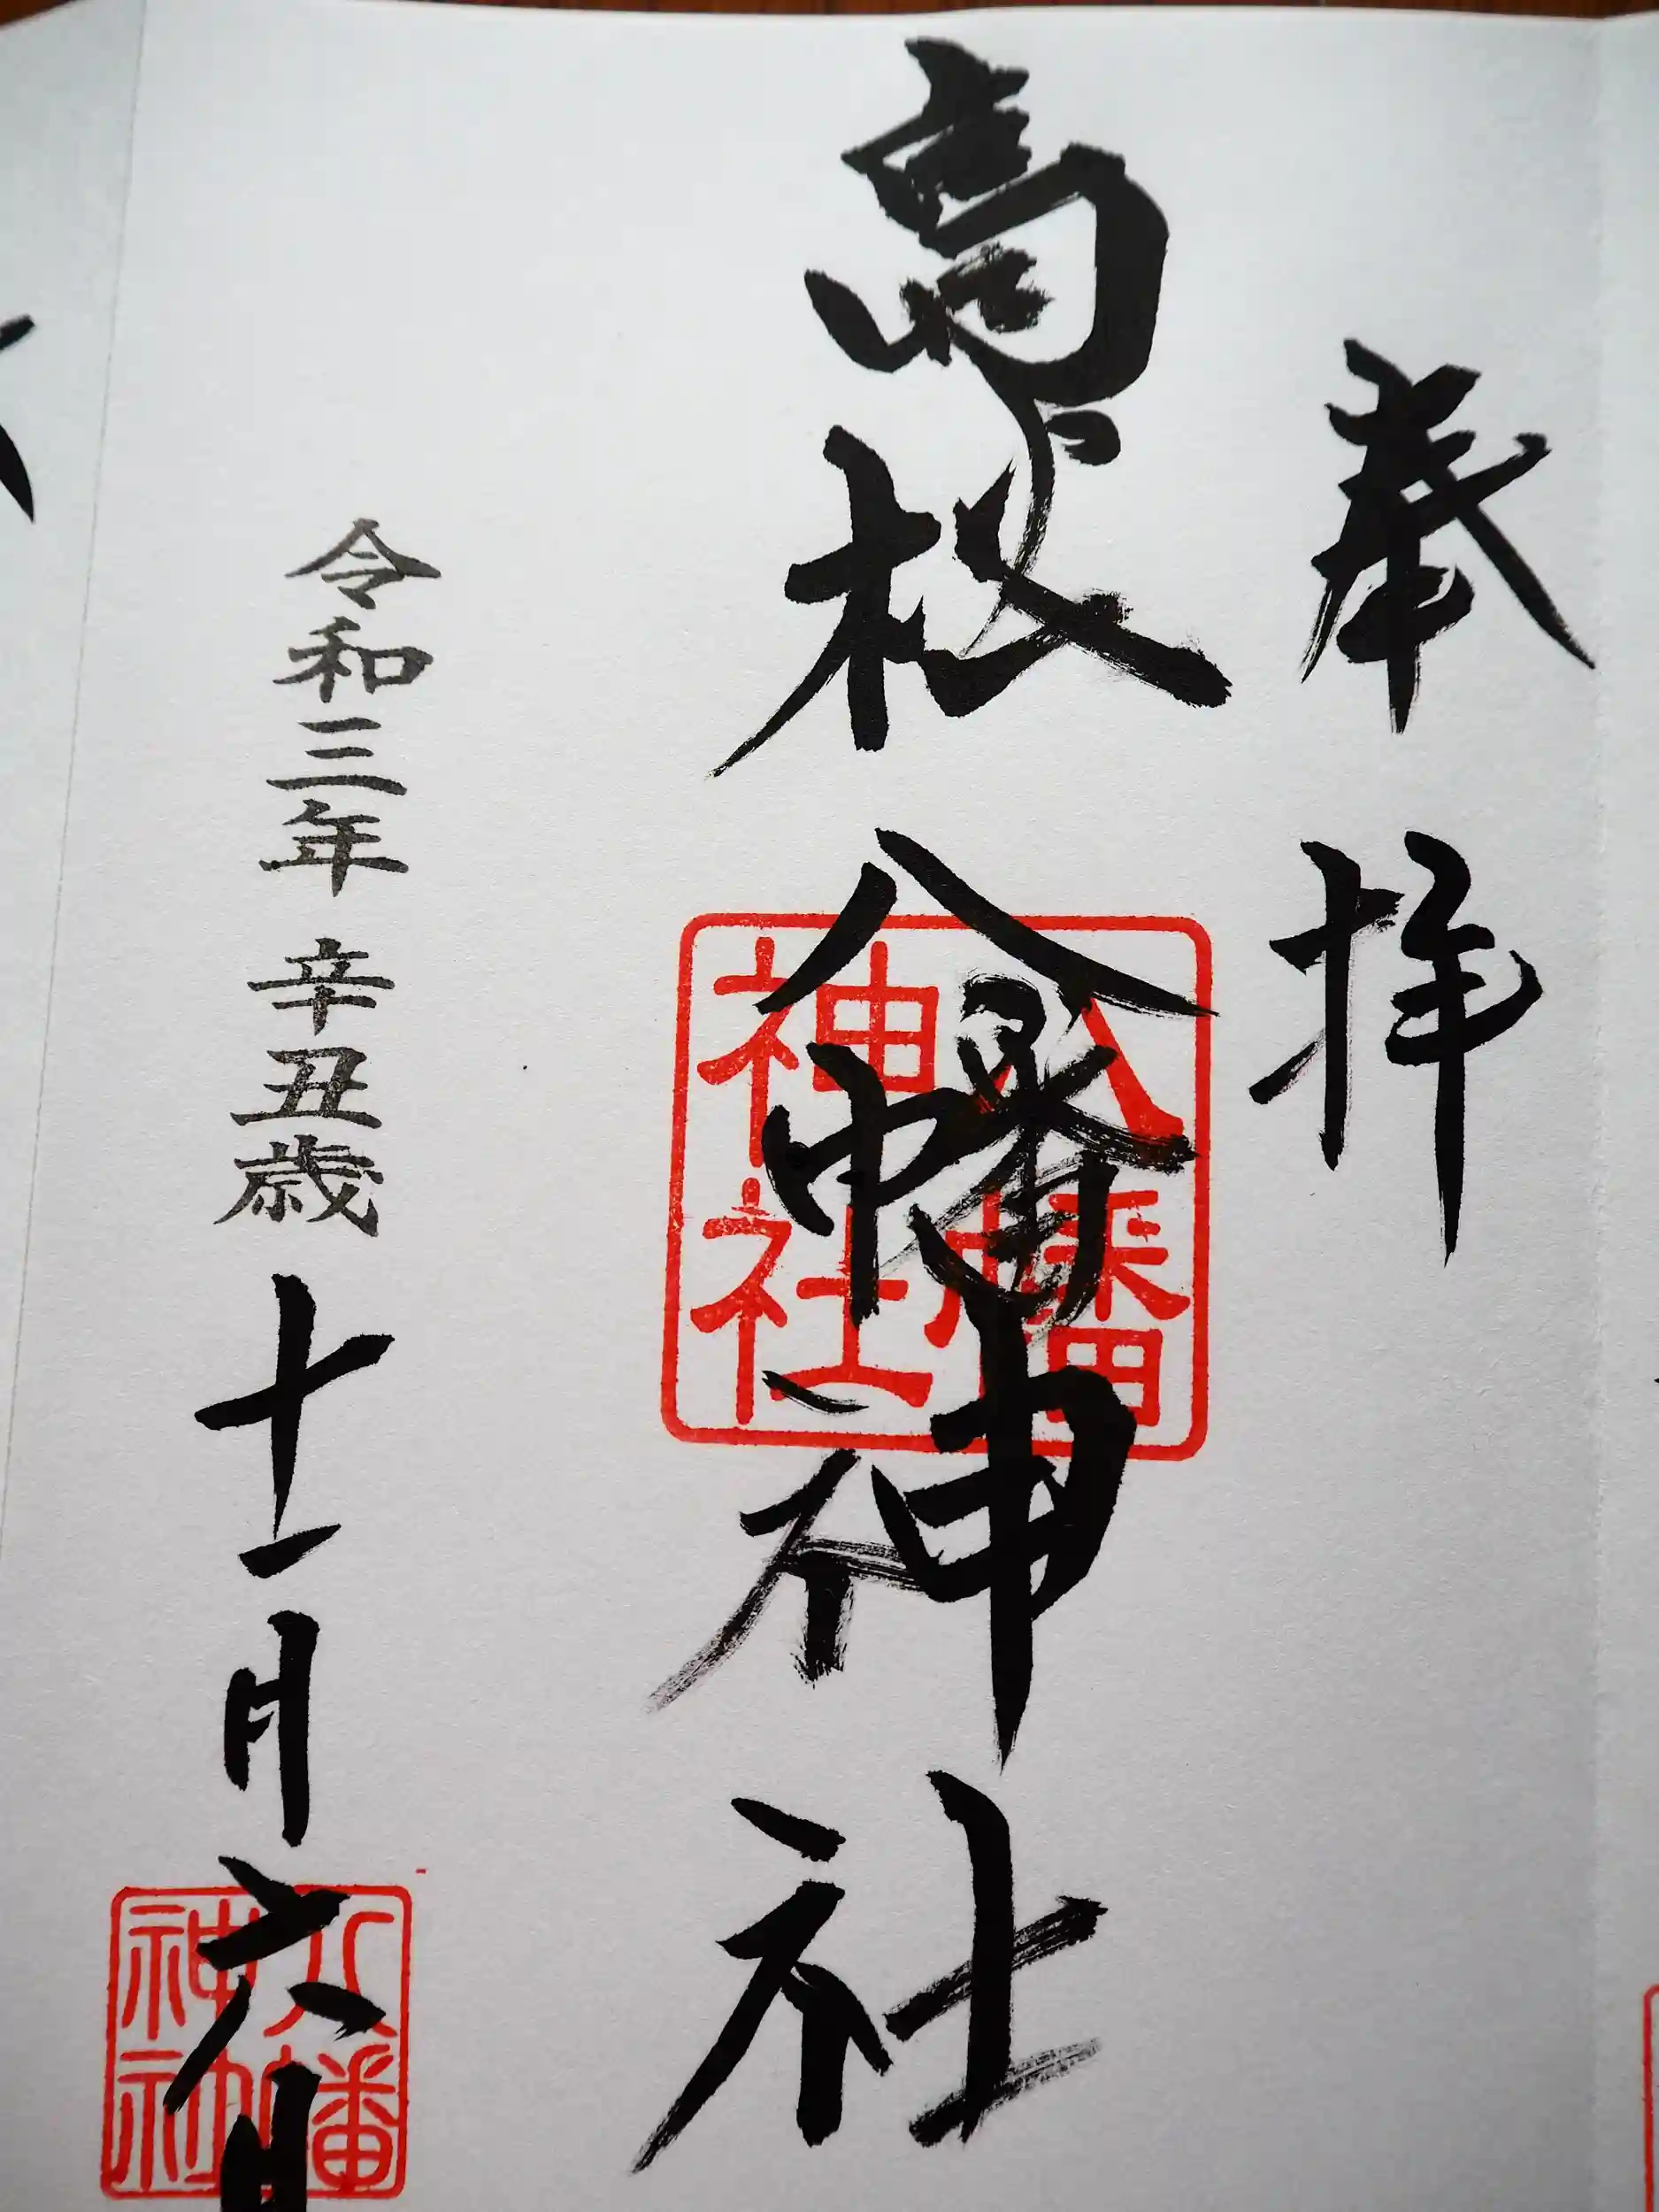 奉拝
高
八幡神社
八幡
神社
令和三年 辛丑歳 十一月六日
八幡
神社